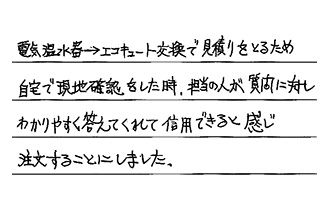 電気温水器→エコキュート交換で見積りをとるため
自宅で現地確認をした時、担当の人が質問に対し
わかりやすく答えてくれて信用できると感じ
注文することにしました。